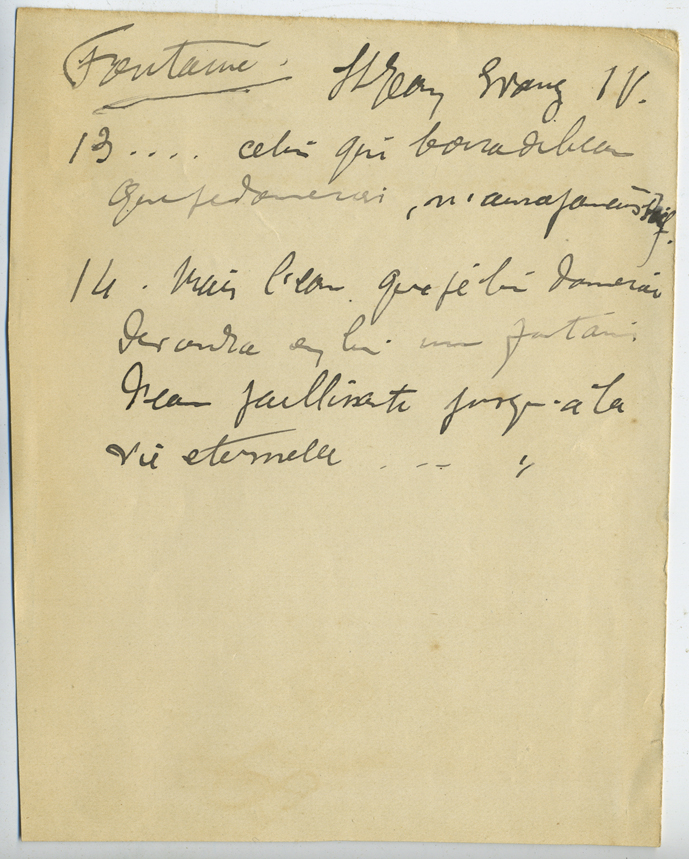 Fontaine. St Jean Evang IV.
13.... celui qui boira de l'eau
que je donnerai, n'aura jamais soif.
14. Mais l'eau que je lui donnerai
deviendra en lui une fontaine
d'eau jaillisante jusqu-à la
vie eternelle ....